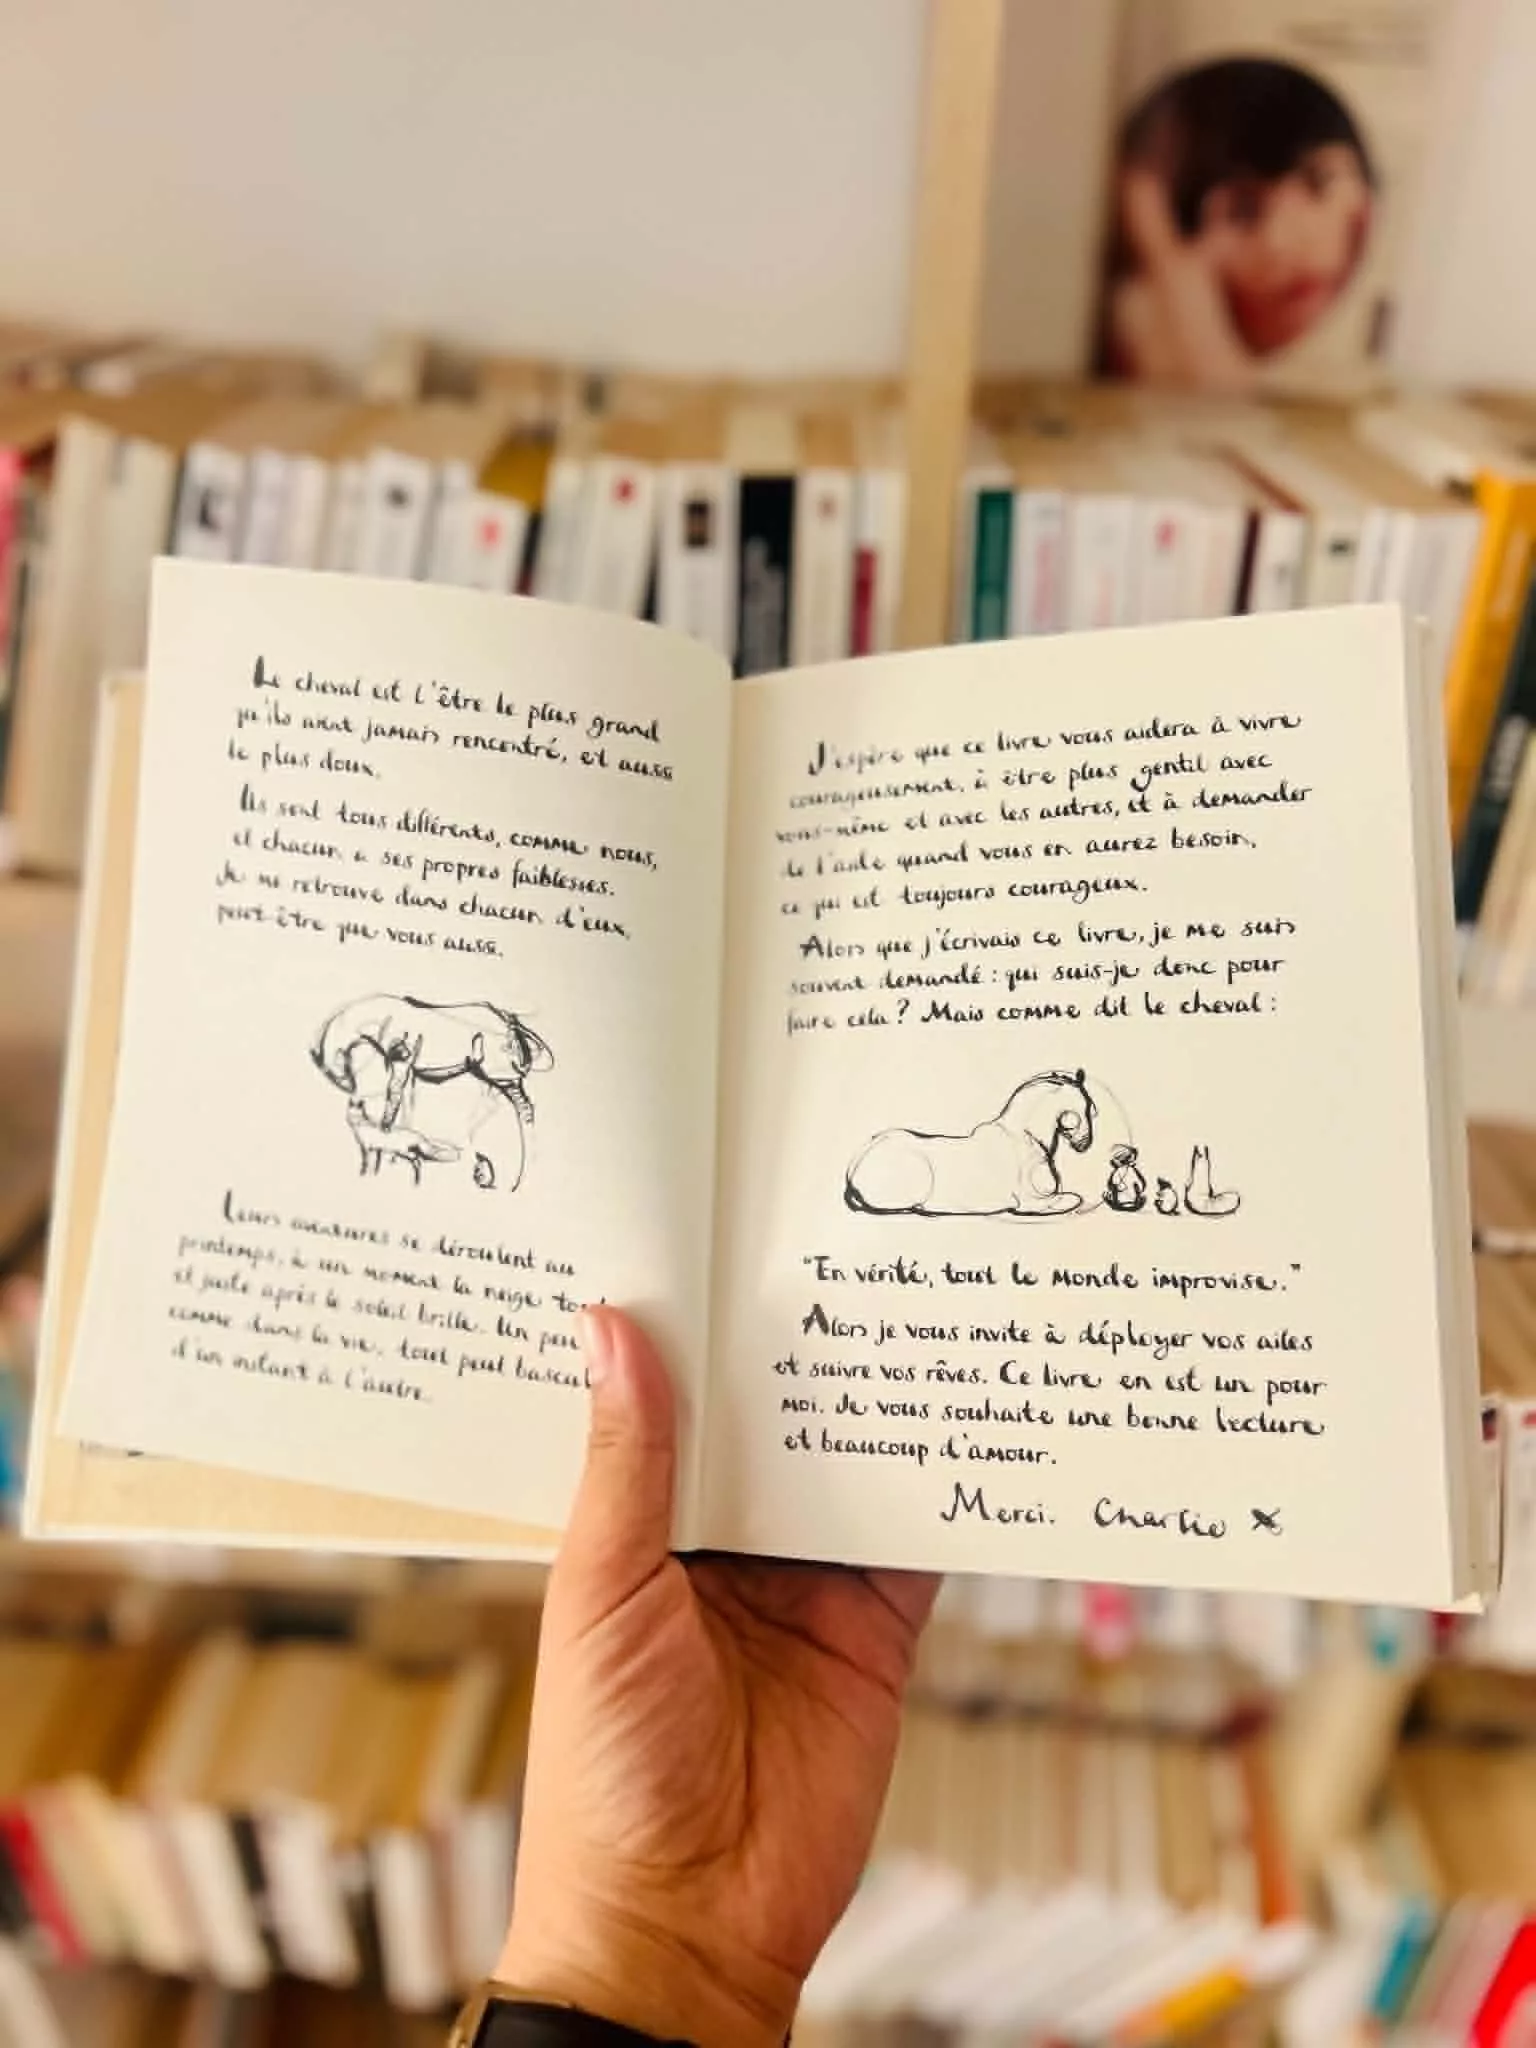 Le cheval est l'être le plus grand
qu'ils aient jamais rencontré, et aussi
le plus doux.
Ils sont tous différents, comme nous,
et chacun a ses propres faiblesses.
Je me retrouve dans chacun d'eux,
peut-être que vous aussi.
Leurs aventures se déroulent au
printemps, à un moment la neige
et juste après le soleil brille. Un peu
comme dans la vie, tout peut bascul
d'un instant à l'autre.
J'espère que ce livre vous aidera à vivre
courageusement, à être plus gentil avec
vous-même et avec les autres, et à demander
de l'aide quand vous en aurez besoin,
ce qui est toujours courageux.
Alors que j'écrivais ce livre, je me suis
souvent demandé : qui suis-je donc pour
faire cela ? Mais comme dit le cheval :
"En vérité, tout le monde improvise."
Alors je vous invite à déployer vos ailes
et suivre vos rêves. Ce livre en est un pour
moi. Je vous souhaite une bonne lecture
et beaucoup d'amour.
Merci. Charlie x